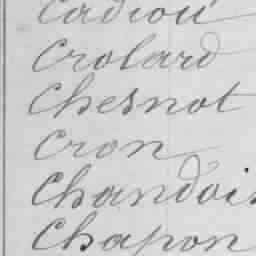 Cadiou
Crolard
Chesnot
Cron
Chandois
Chapon